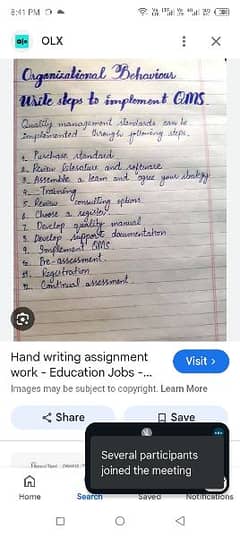 8:41 PM
OLX
Organizational Behaviour
Write steps to implement QMS
Quality management standards can be
implemented through following steps.
1. Purchase standard
2. Review literature and software
3. Assemble a team and agree your strategy
4. Training
5. Review consulting options
6. Choose a register
7. Develop quality manual
8. Develop support documentation
9. Implement QMS
10. Pre-assessment
11. Registration
12. Continual assessment
Hand writing assignment
work - Education Jobs -...
Visit >
Images may be subject to copyright. Learn More
Share
Save
Several participants
joined the meeting
Home
Search
Saved
Notifications